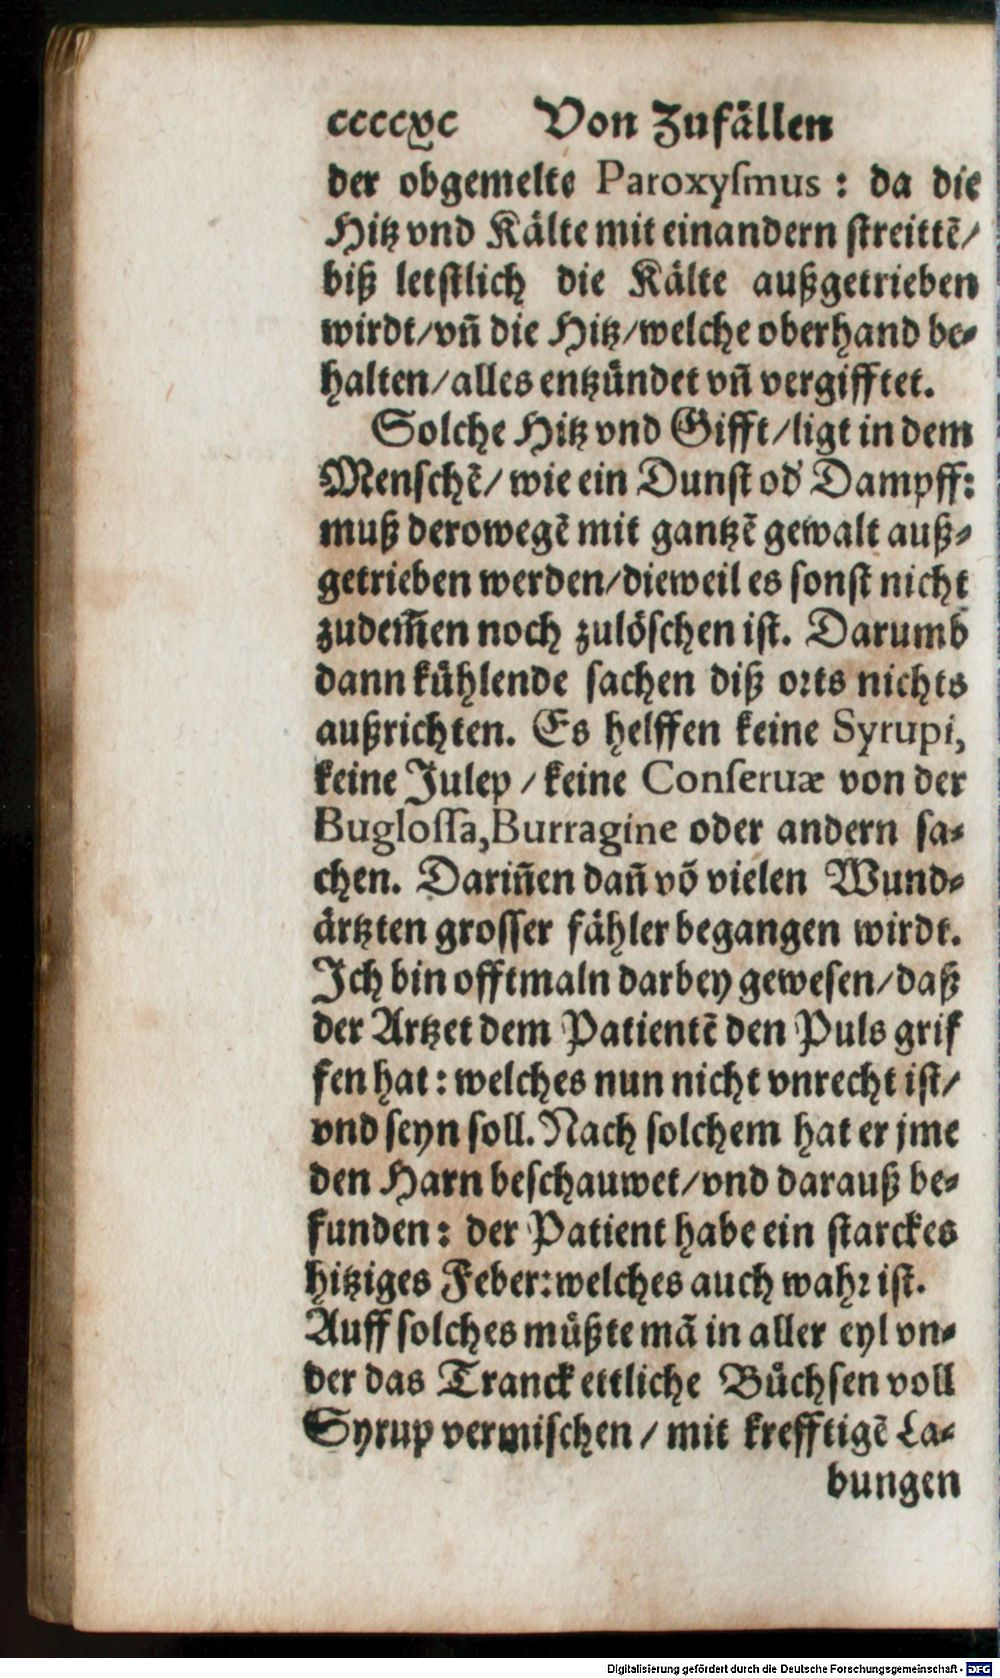 ccccxc Von Zufällen
der obgemelte Paroxyſmus : da die
Hitz vnd Kälte mit einandern ſtreittē/
biß letſtlich die Kälte außgetrieben
wirdt/vn̄ die Hitz/welche oberhand be⸗
halten/alles entzündet vn̄ vergifftet.
Solche Hitz vnd Gifft/ligt in dem
Menſchē/ wie ein Dunſt od' Dampff:
muß derowegē mit gantzē gewalt auß⸗
getrieben werden/dieweil es ſonſt nicht
zudem̄en noch zulöſchen iſt. Darumb
dann kühlende ſachen diß orts nichts
außrichten. Es helffen keine Syrupi,
keine Julep / keine Conſeruæ von der
Bugloſſa,Burragine oder andern ſa⸗
chen. Darin̄en dan̄ võ vielen Wund⸗
ärtzten groſſer fähler begangen wirdt.
Ich bin offtmaln darbey geweſen/daß
der Artzet dem Patientē den Puls grif
fen hat: welches nun nicht vnrecht iſt/
vnd ſeyn ſoll. Nach ſolchem hat er jme
den Harn beſchauwet/vnd darauß be⸗
funden: der Patient habe ein ſtarckes
hitziges Feber:welches auch wahr iſt.
Auff ſolches müßte mā in aller eyl vn⸗
der das Tranck ettliche Büchſen voll
Syrup vermiſchen / mit krefftigē La⸗
bungen
Digitalisierung gefördert durch die Deutsche Forschungsgemeinschaft - DFG